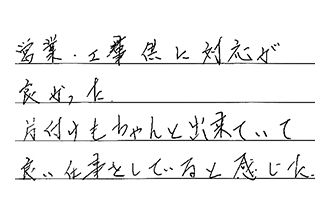 営業・工事供に対応が
良かった.
片付けもちゃんと出来ていて
良い仕事をしていると感じた.